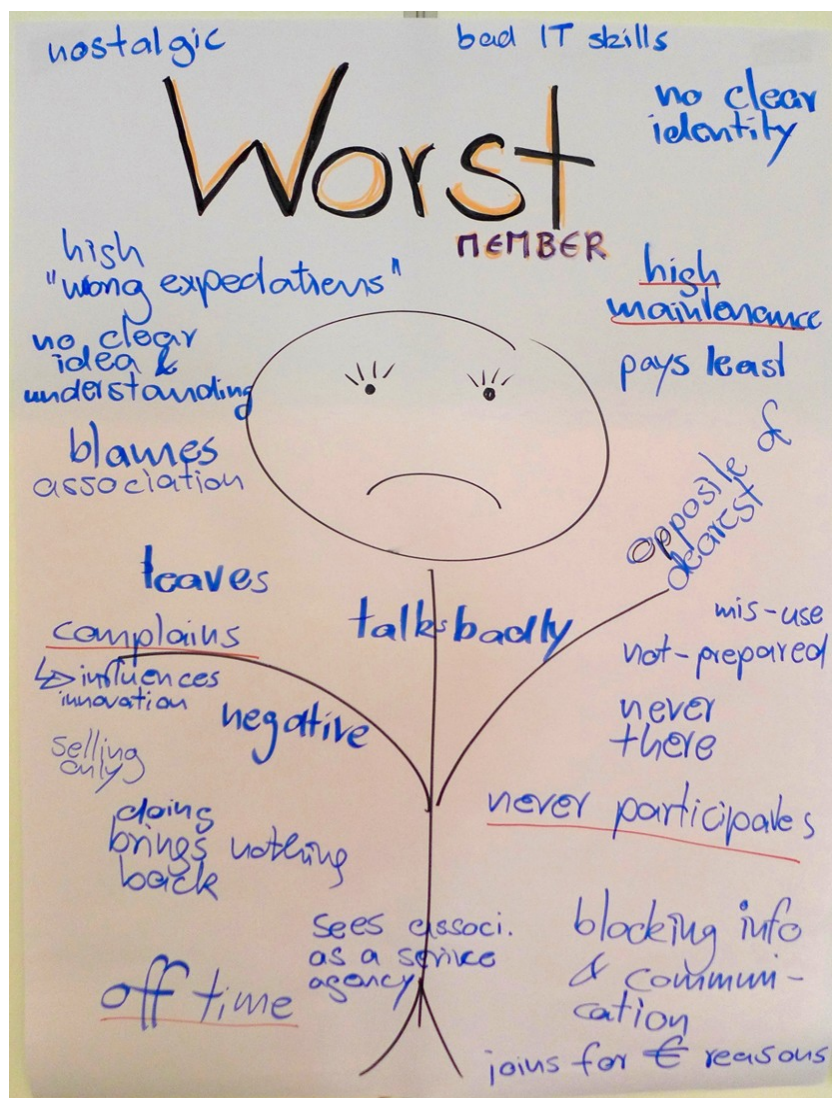 nostalgic
bad IT skills
no clear
identity
Worst
MEMBER
high
"wrong expectations"
no clear
idea &
understanding
blames
association
high
maintenance
pays least
opposite of
dearest
leaves
complains
↳ influences
innovation
talks badly
negative
selling
only
mis-use
not-prepared
never
there
never participates
doing
brings nothing
back
sees associ.
as a service
agency
off time
blocking info
& communi-
cation
joins for € reasons